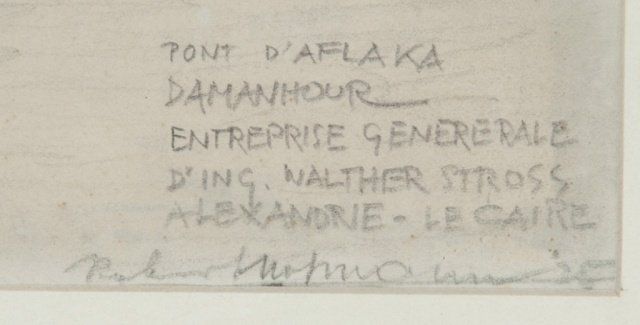 PONT D'AFLAKA
DAMANHOUR
ENTREPRISE GENERERALE
D'ING. WALTHER STROSS
ALEXANDRIE - LE CAIRE